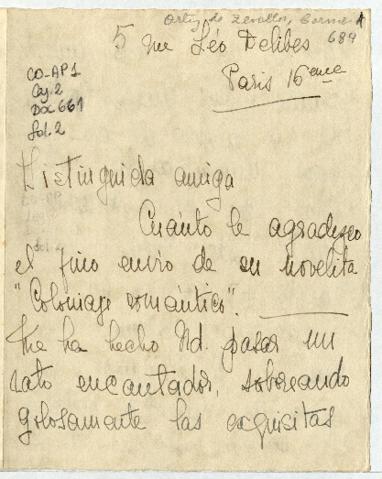 Ortiz de Zevallos, Carmen
1
689
5 rue Léo Delibes
Paris 16eme
CO-AP1
Caj. 2
Doc 661
fol. 2
Distinguida amiga
Cuánto le agradezco
el fino envío de su novelita
"Coloniaje romántico".
Me ha hecho Ud. pasar un
rato encantador, saboreando
golosamente las exquisitas